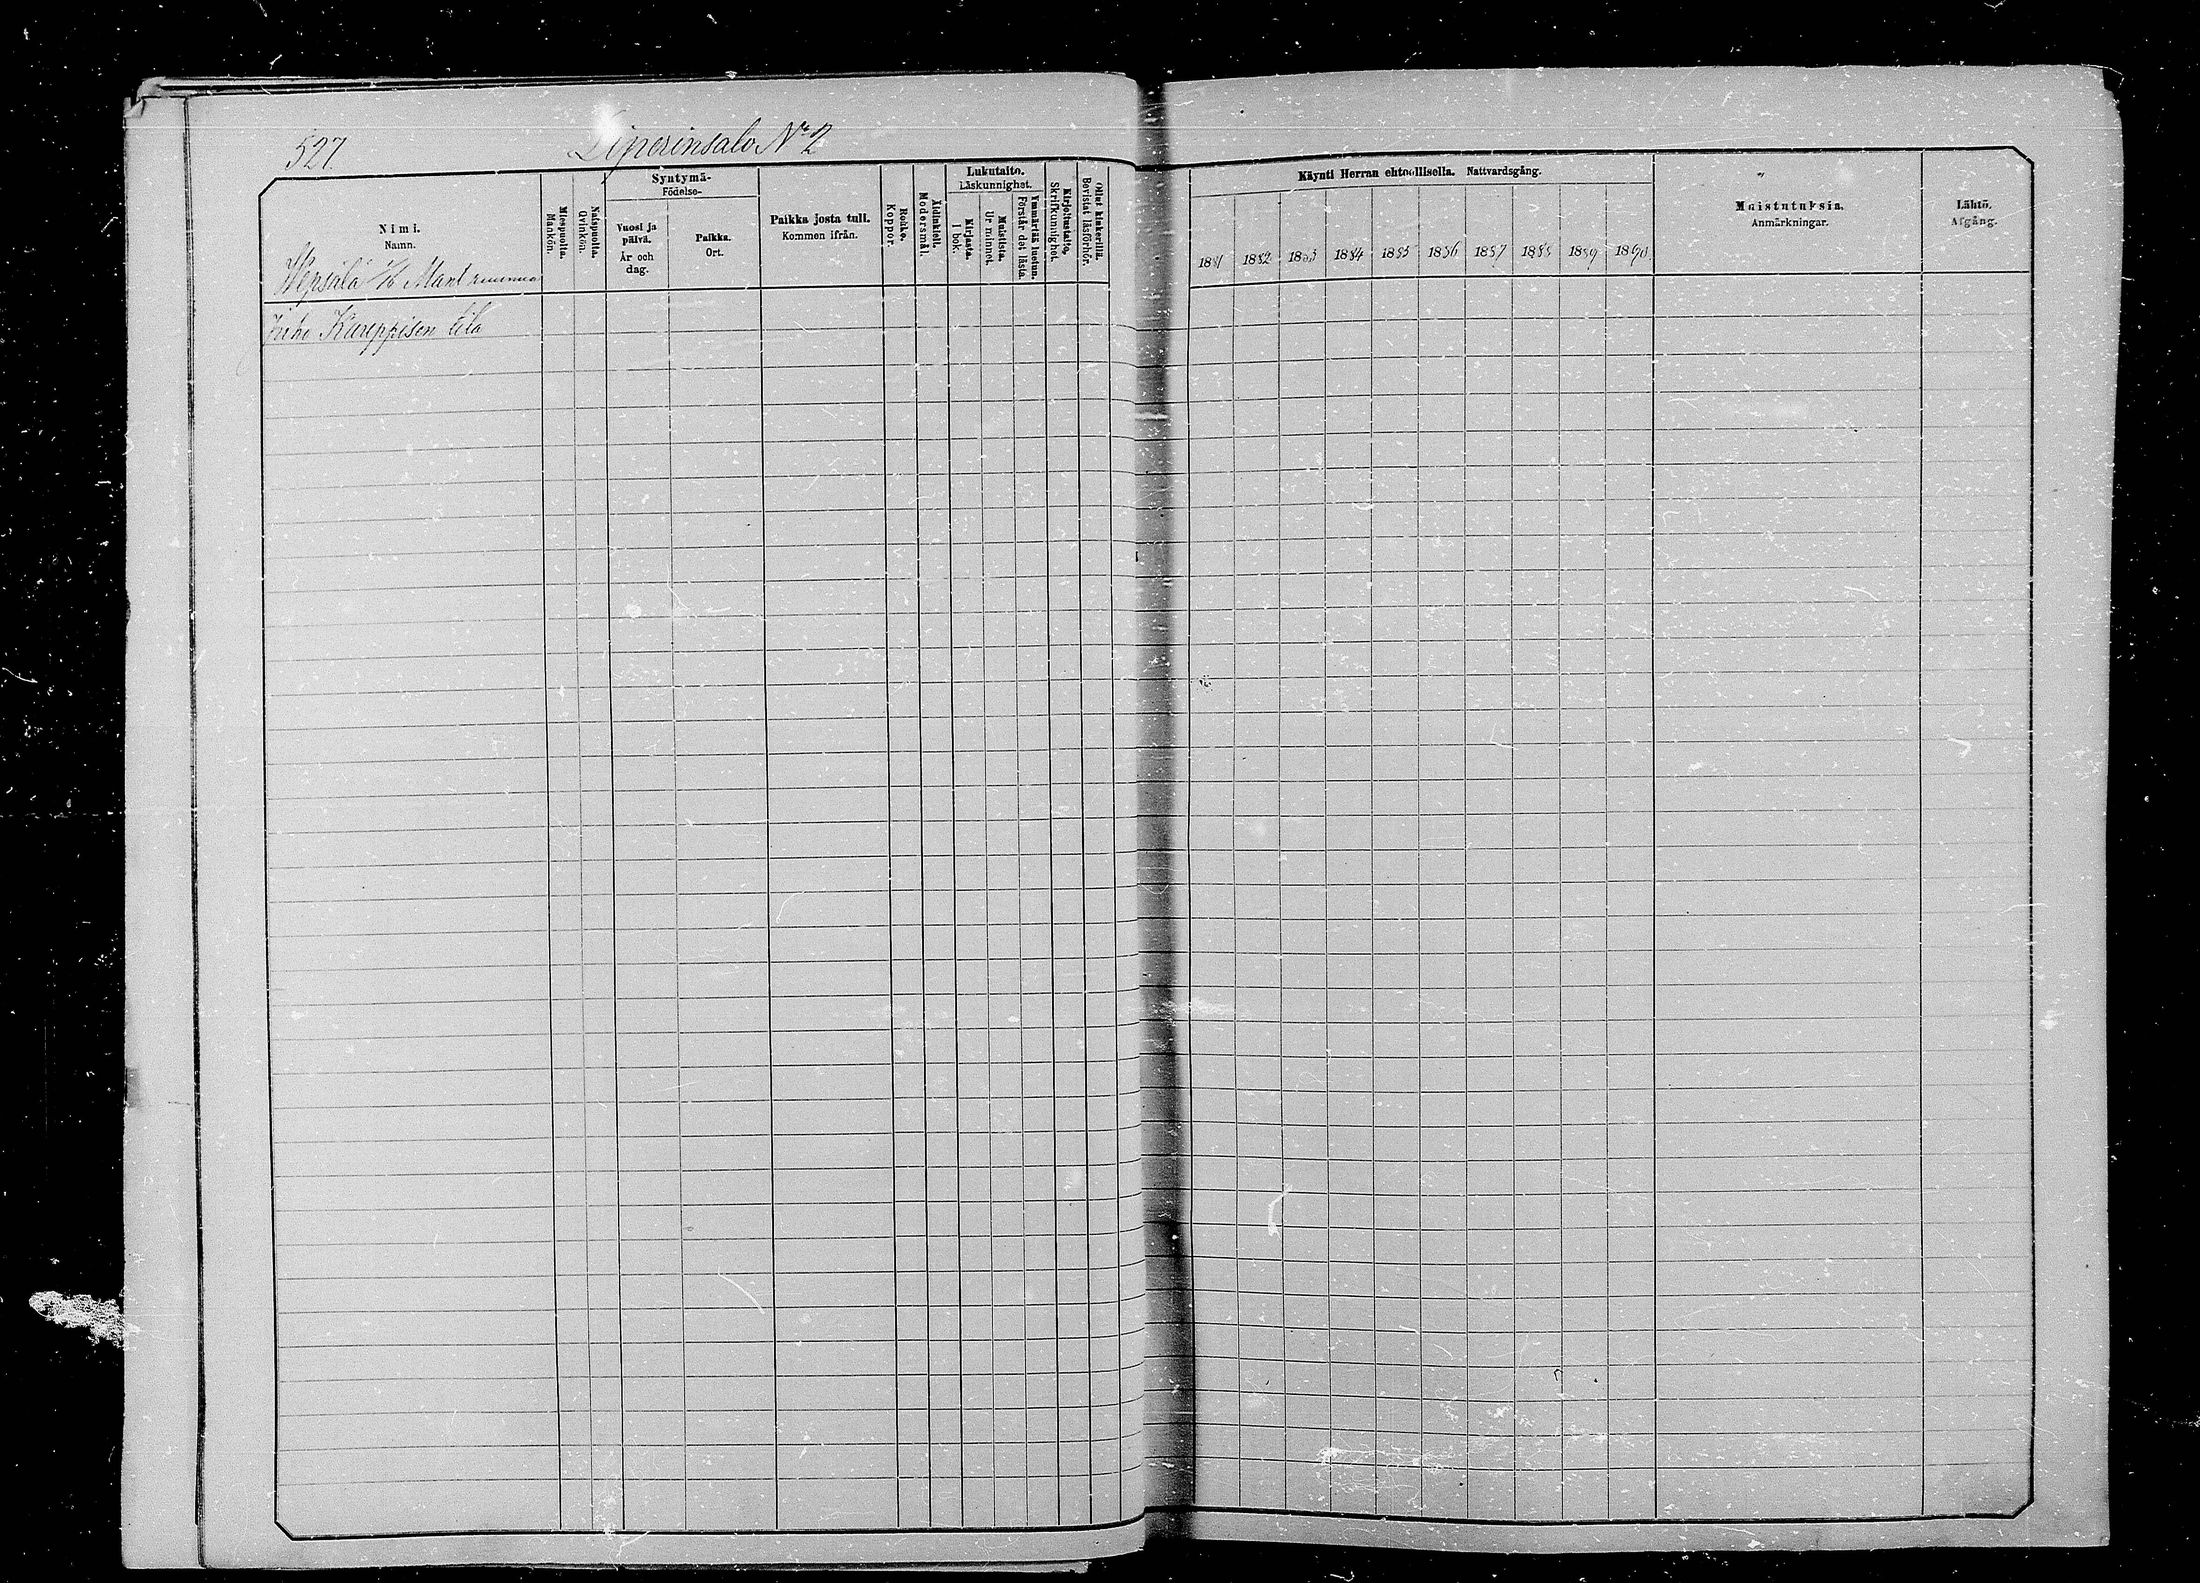 527.
Liperinsalo No 2
Syntymä-
Födelse-
Lukutaito.
Läskunnighet.
Nimi.
Namn.
Miespuolia.
Mankön.
Naispuolia.
Qvinkön.
Vuosi ja päivä.
År och dag.
Paikka.
Ort.
Paikka josta tuli.
Kommen ifrån.
Rokko.
Koppor.
Äidinkieli.
Modersmål.
Kirjasta.
I bok.
Muistista.
Ur minnet.
Ymmärtää luetun.
Förstår det lästa.
Kirjoitustaito.
Skrifkunnighet.
Ollut kinkerillä.
Bevistat läsförhör.
Käynti Herran ehtoollisella. Nattvardsgång.
1881 1882 1883 1884 1885 1886 1887 1888 1889 1890
Muistutuksia.
Anmärkningar.
Lähtö.
Afgång.
Wepsälä
Karppisen tila